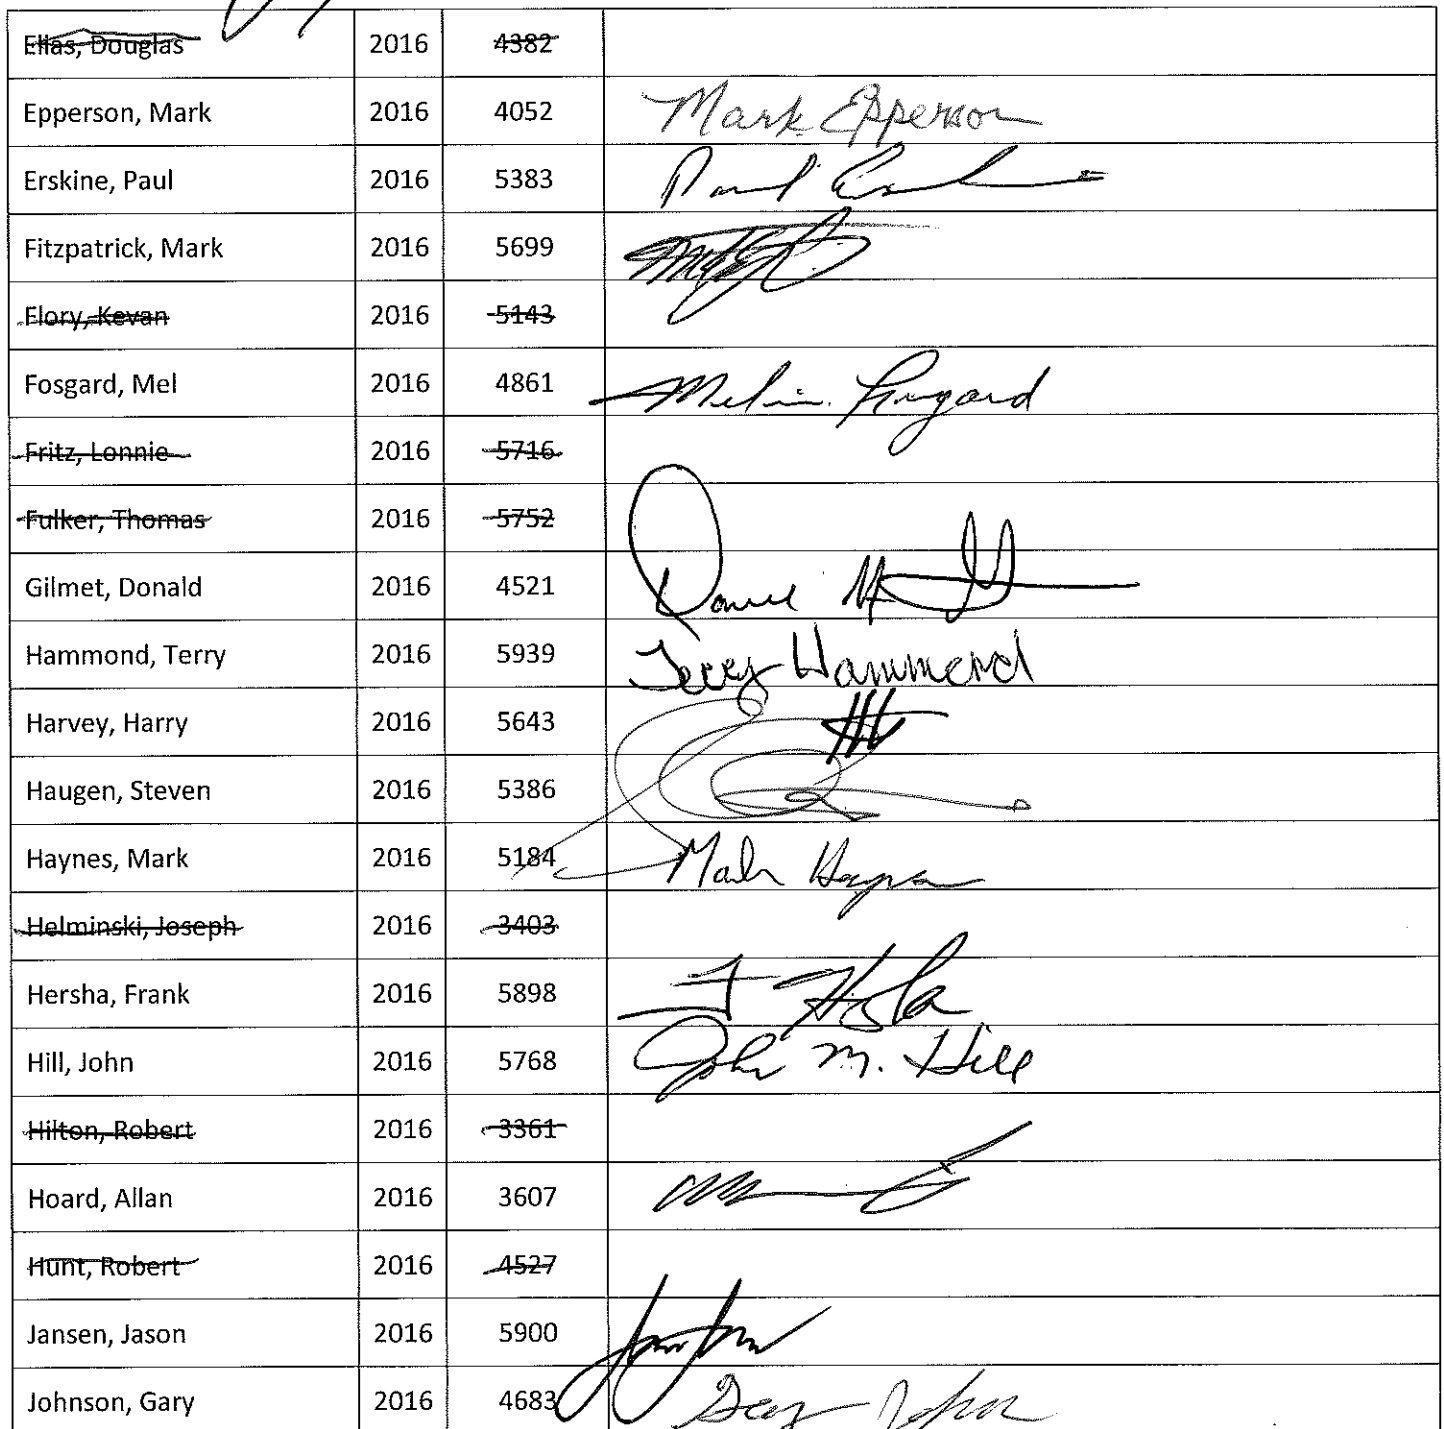 Elias, Douglas 2016 4382
Epperson, Mark 2016 4052 Mark Epperson
Erskine, Paul 2016 5383 Paul
Fitzpatrick, Mark 2016 5699
Flory, Kevan 2016 5143
Fosgard, Mel 2016 4861 Melvin Fosgard
Fritz, Lonnie 2016 5716
Fulker, Thomas 2016 5752
Gilmet, Donald 2016 4521
Hammond, Terry 2016 5939 Terry Hammond
Harvey, Harry 2016 5643
Haugen, Steven 2016 5386
Haynes, Mark 2016 5184 Mark Haynes
Helminski, Joseph 2016 3403
Hersha, Frank 2016 5898
Hill, John 2016 5768 John M. Hill
Hilton, Robert 2016 3361
Hoard, Allan 2016 3607
Hunt, Robert 2016 4527
Jansen, Jason 2016 5900
Johnson, Gary 2016 4683 Gary